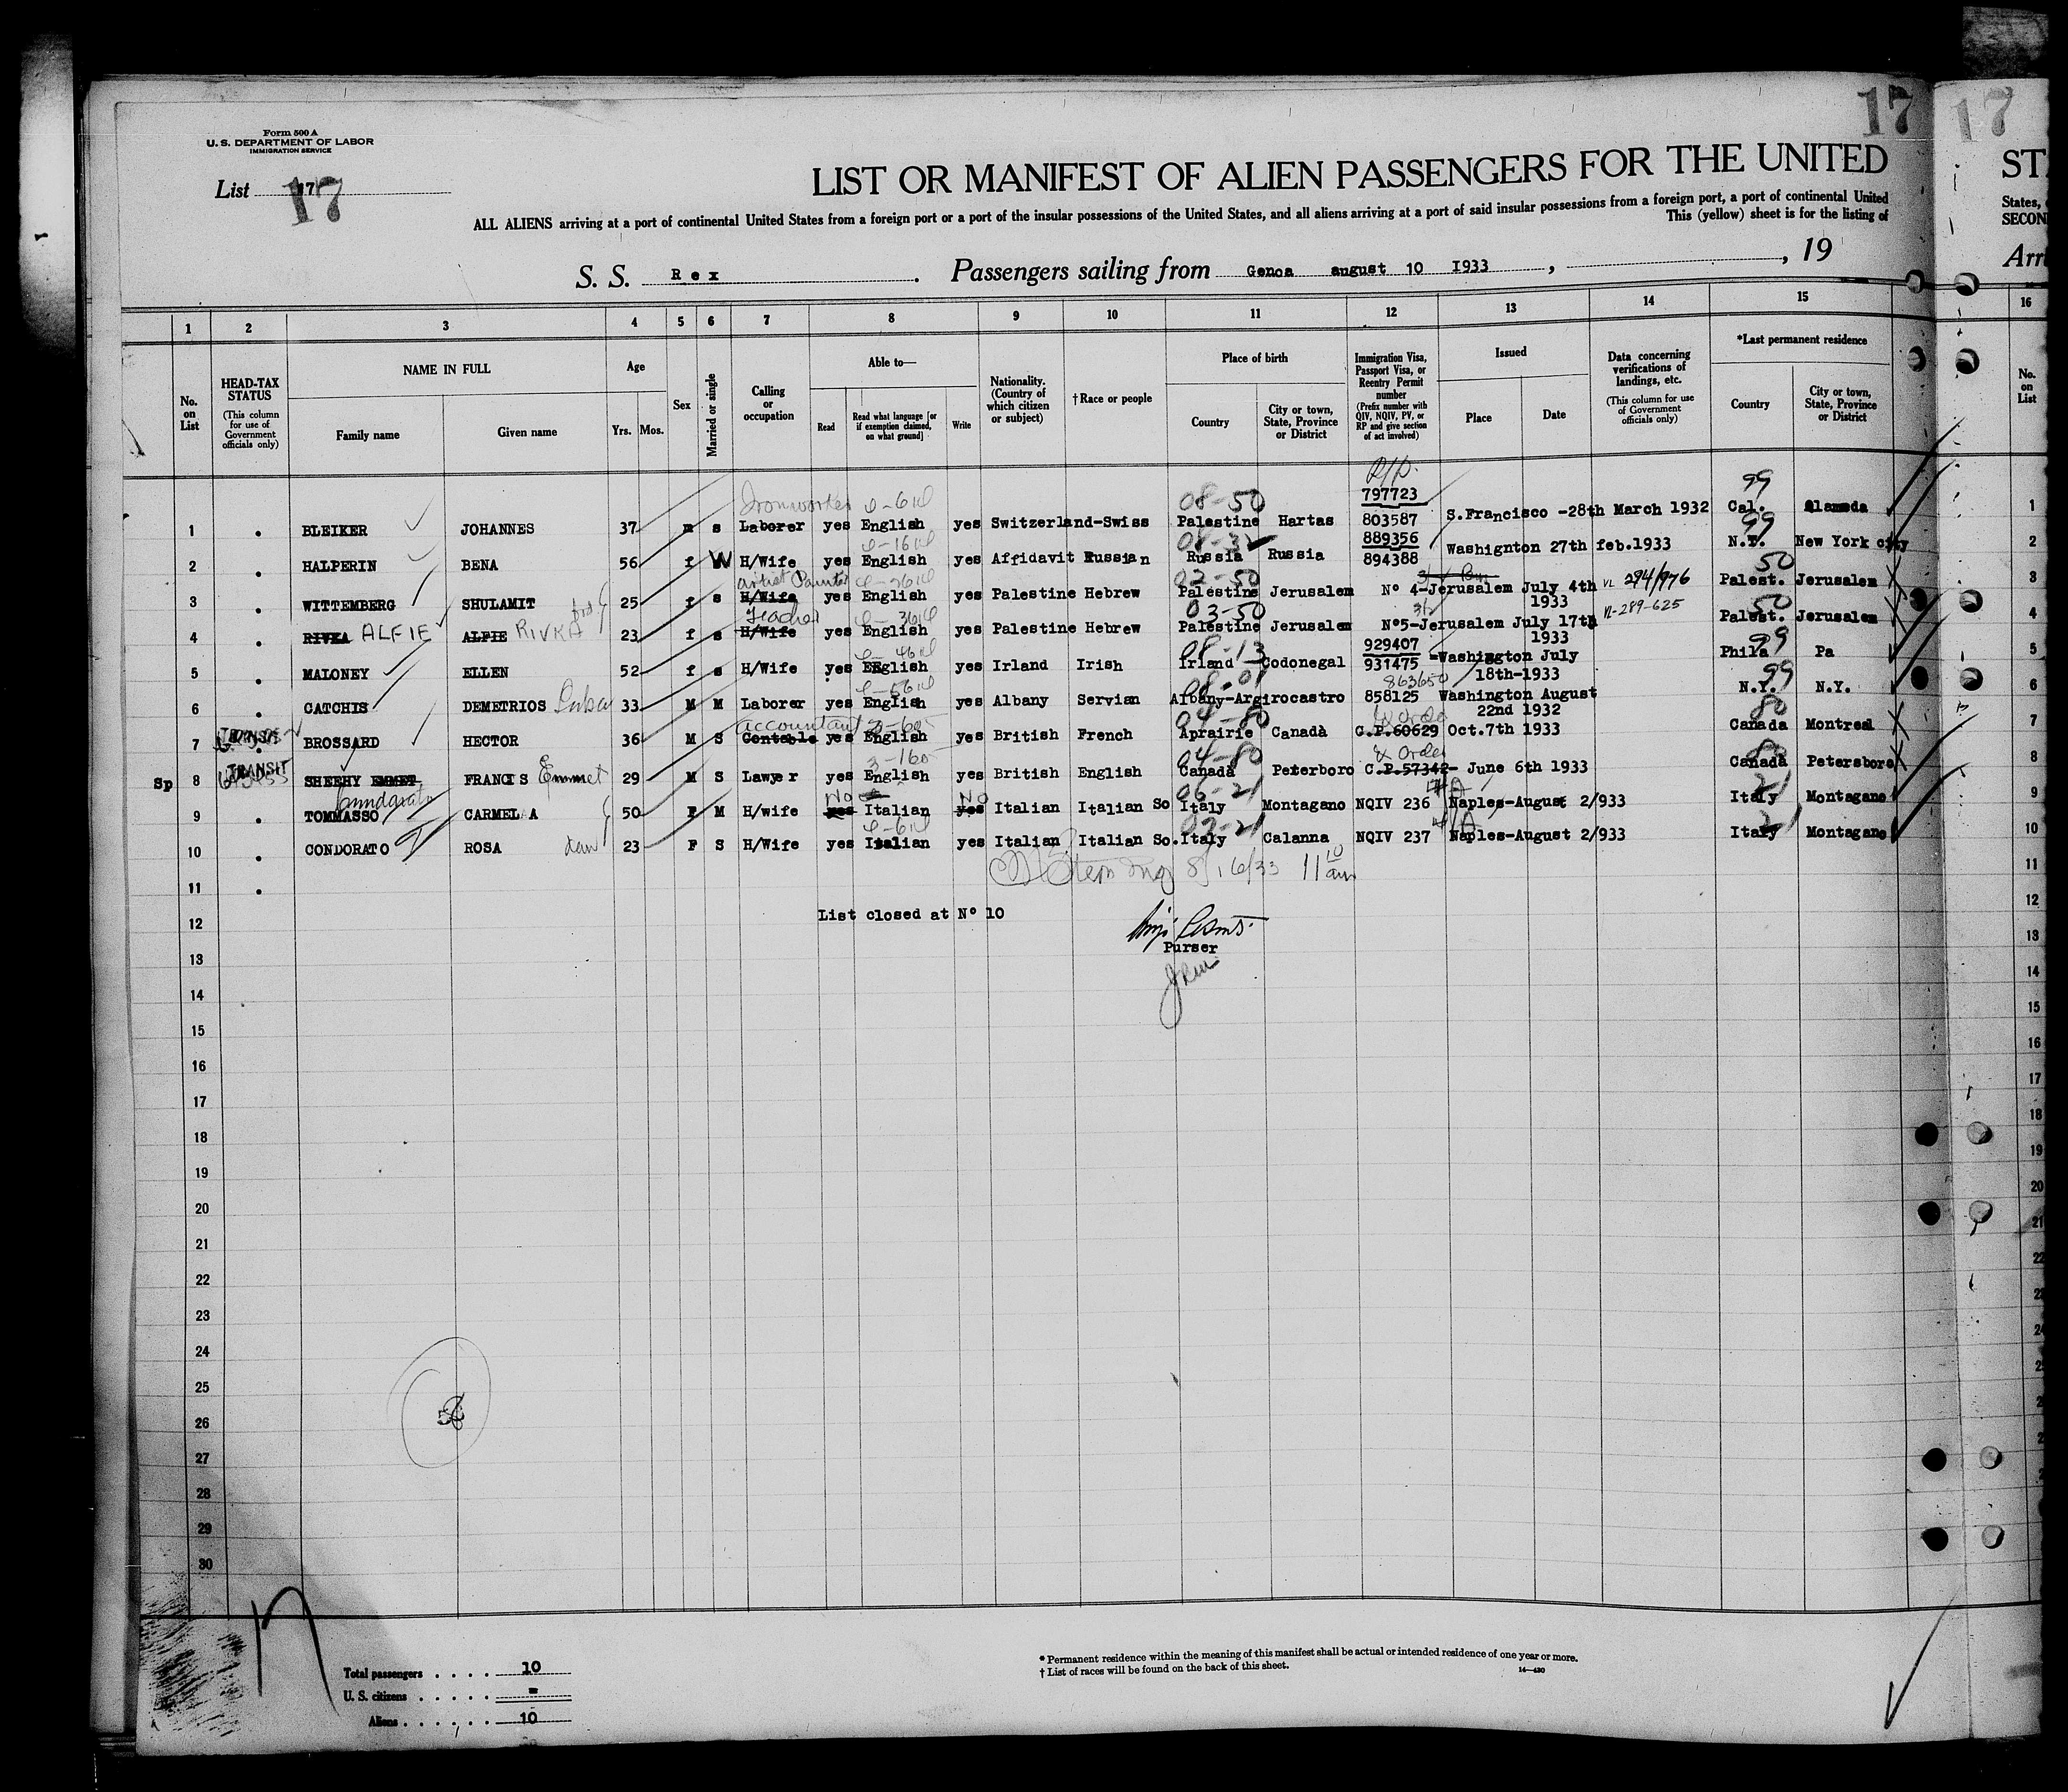 17 17
Form 500 A
U. S. DEPARTMENT OF LABOR
IMMIGRATION SERVICE
List 17
17
LIST OR MANIFEST OF ALIEN PASSENGERS FOR THE UNITED
STA
ALL ALIENS arriving at a port of continental United States from a foreign port or a port of the insular possessions of the United States, and all aliens arriving at a port of said insular possessions from a foreign port, a port of continental United
States,
This (yellow) sheet is for the listing of
SECON
S. S. Rex. Passengers sailing from Genoa august 10 I933, , 19
Arri
1 2 3 4 5 6 7 8 9 10 11 12 13 14 15 16
No. on List
HEAD-TAX STATUS
(This column for use of Government officials only)
NAME IN FULL
Family name Given name
Age
Yrs. Mos.
Sex
Married or single
Calling or occupation
Able to—
Read
Read what language [or if exemption claimed, on what ground]
Write
Nationality. (Country of which citizen or subject)
† Race or people
Place of birth
Country
City or town, State, Province or District
Immigration Visa, Passport Visa, or Reentry Permit number
(Prefix number with QIV, NQIV, PV, or RP and give section of act involved)
Issued
Place Date
Data concerning verifications of landings, etc.
(This column for use of Government officials only)
*Last permanent residence
Country
City or town, State, Province or District
No. on List
Ironworker 08-50 797723 99
1 BLEIKER JOHANNES 37 m s Laborer yes English yes Switzerland-Swiss Palestine Hartas 803587 S.Francisco -28th March 1932 Cal. Alameda 1
08-3 889356 99
2 HALPERIN BENA 56 f W H/Wife yes English yes Affidavit Russian Russia Russia 894388 Washignton 27th feb.1933 N.Y. New York city 2
artist Painter 02-50 50
3 WITTEMBERG SHULAMIT 25 f s H/Wife yes English yes Palestine Hebrew Palestine Jerusalem Nº 4-Jerusalem July 4th 1933 VL 294/976 Palest. Jerusalem 3
Teacher 03-50 50
4 RIVKA ALFIE ALFIE RIVKA 23 f s H/Wife yes English yes Palestine Hebrew Palestine Jerusalem Nº5-Jerusalem July 17th 1933 n-289-625 Palest. Jerusalem 4
08-13 929407 99
5 MALONEY ELLEN 52 f s H/Wife yes English yes Irland Irish Irland Codonegal 931475 -Washington July 18th-1933 Phila Pa 5
08-01 863650 99
6 CATCHIS DEMETRIOS 33 M M Laborer yes English yes Albany Servian Albany-Argirocastro 858125 Washington August 22nd 1932 N.Y. N.Y. 6
TRANSIT accountant 04-80 80
7 BROSSARD HECTOR 36 M S Contable yes English yes British French Aprairie Canadà C.P.60629 Oct.7th 1933 Canada Montreal 7
TRANSIT 3-160 04-80 & Order 80
Sp 8 SHEEHY EMMET FRANCIS Emmet 29 M S Lawyer yes English yes British English Canadà Peterboro C.P.57342- June 6th 1933 Canada Petersboro 8
No No 06-21 21
9 TOMMASSO CARMELA 50 F M H/wife yes Italian yes Italian Italian So Italy Montagano NQIV 236 Naples-August 2/933 Italy Montagano 9
03-21 21
10 CONDORATO ROSA 23 F S H/Wife yes Italian yes Italian Italian So. Italy Calanna NQIV 237 Naples-August 2/933 Italy Montagano 10
11 8/16/33 11 10 am 11
12 List closed at Nº 10 12
Purser
13 13
14 14
15 15
16 16
17 17
18 18
19 19
20 20
21 21
22 22
23
24
25
26
27
28
29
30
Total passengers . . . . 10
U. S. citizens . . . . . -
Aliens . . . . . . 10
* Permanent residence within the meaning of this manifest shall be actual or intended residence of one year or more.
† List of races will be found on the back of this sheet.
14—430